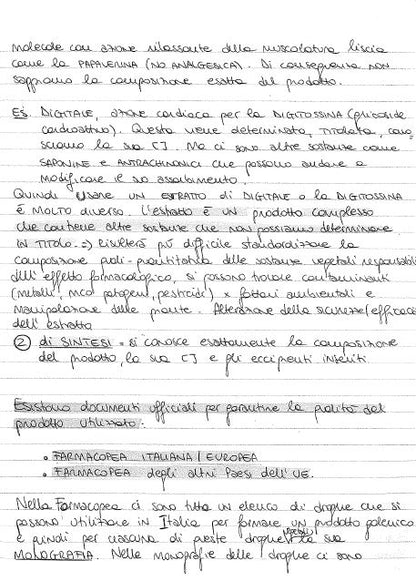 molecole con azione rilassante della muscolatura liscia
come la PAPAVERINA (NO ANALGESICA). Di conseguenza NON
sappiamo la composizione esatta del prodotto.
ES. DIGITALE, azione cardiaca per la DIGITOSSINA (glicoside
cardioattivo). Questa viene determinata, TITOLATA, cono
sciamo la sua [ ]. Ma ci sono altre sostanze come
SAPONINE e ANTRACHINONICI che possono andare a
modificare il suo assorbimento.
Quindi USARE UN ESTRATTO di DIGITALE o la DIGITOSSINA
È MOLTO diverso. L'estratto è UN prodotto complesso
che contiene altre sostanze che non possiamo determinare
IN TITOLO. => Risulterà più difficile standardizzare la
composizione quali-quantitativa delle sostanze vegetali responsabili
dell'effetto farmacologico, si possono trovare contaminanti
(metalli, micol patogeni, pesticidi) x fattori ambientali e
manipolazione delle piante. Alterazione della sicurezza/efficacia
dell'estratto
② di SINTESI = si conosce esattamente la composizione
del prodotto, la sua [ ] e gli eccipienti inseriti.
Esistono documenti ufficiali per garantire la qualità del
prodotto utilizzato:
• FARMACOPEA ITALIANA / EUROPEA
• FARMACOPEA degli altri Paesi dell'UE.
Nella Farmacopea ci sono tutto un elenco di droghe che si
possono utilizzare in Italia per formare un prodotto galenico
e quindi per ciascuna di queste droghe la sua
MONOGRAFIA. Nelle monografie delle droghe ci sono